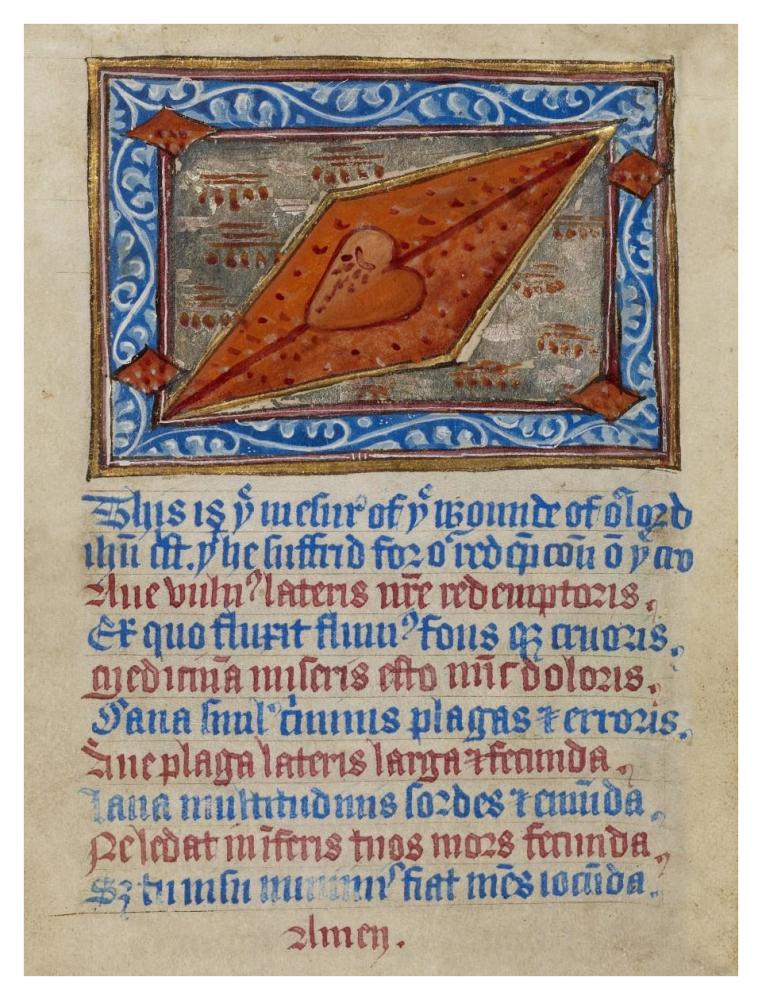 This is yͤ mesur of yͤ wounde of oͬ lord
ihū cſt. yͭ he suffrid for oͬ redēpcoū ō yͤ cro
Aue vulnꝰ lateris nr̄e redemptoris.
Ex quo fluxit fluuiꝰ fons qꝫ cruoris.
Medicina miseris esto nūc doloris.
Sana simul c̄minis plagas ⁊ erroris.
Aue plaga lateris larga ⁊ fecunda.
Laua multitudinis sordes ⁊ emūda.
Ne ledat in īferis tuos mors secunda.
Sꝫ tu fiat mēs iocūda.
Amen.